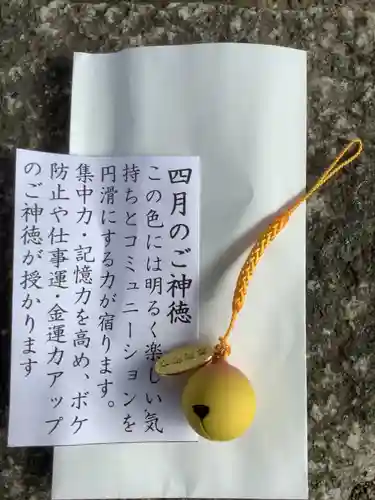 四月のご神徳
この色には明るく楽しい気
持ちとコミュニーションを
円滑にする力が宿ります。
集中力・記憶力を高め、ボケ
防止や仕事運・金運力アップ
のご神徳が授かります